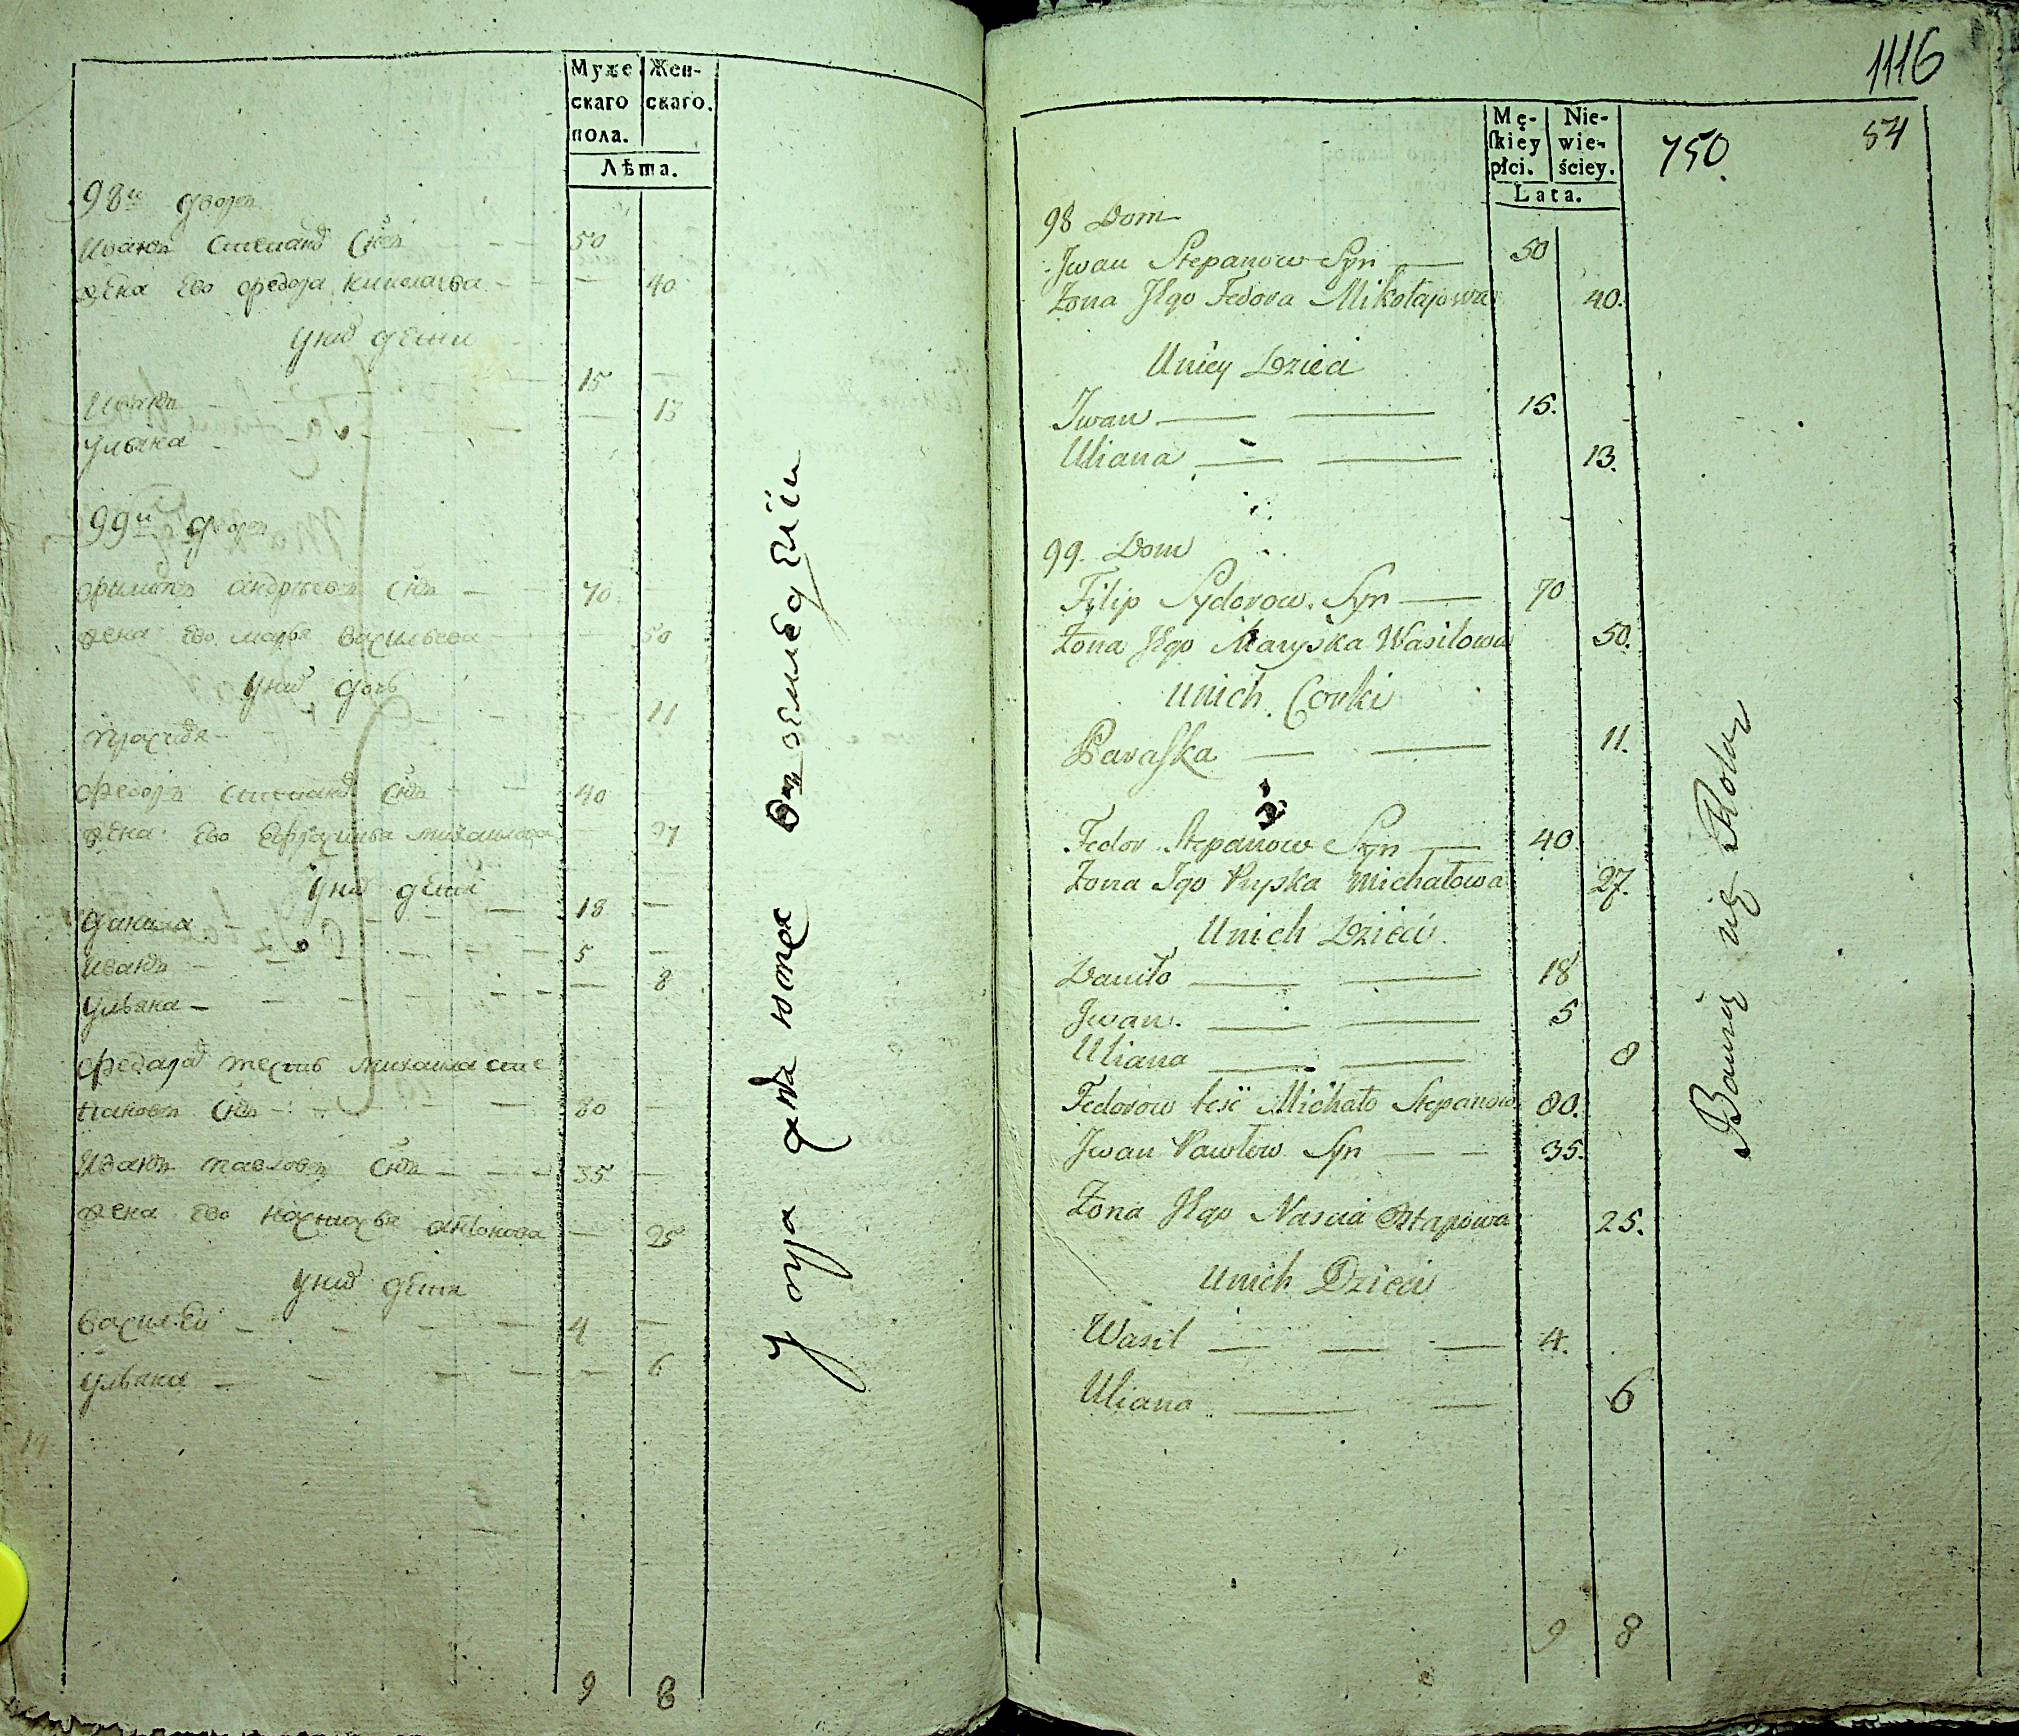 Муже
скаго
пола.
Жен-
скаго.
Лѣта.
98й дворъ
Иванъ Степановъ Снъ 50
жена Ево Федора Николаева 40
у них дети
Иванъ 15
Ульяна 13
99й дворъ
Филипъ Андреевъ Снъ 70
жена Ево Марья Васильева 50
у них дочь
11
Федоръ Степановъ Снъ 40
жена Ево Ефросинья Михаилова 27
у них дети
Данила 18
Иванъ 5
Ульяна 8
Федоров тесть Михаила Сте
пановъ Снъ 80
Иванъ Павловъ Снъ 35
жена Ево Настасья Антонова 25
у них дети
Василѣй 4
Ульяна 6
9 8
1116
Mę-
ſkiey
płci.
Nie-
wie-
ściey.
Lata.
750.
54
98 Dom
Jwan Stepanow Syn 50
Żona Jego Fedora Mikołajowa 40.
Uniey Dzieci
Jwan 15.
Uliana 13.
99. Dom
Filip Sydorow Syn 70
Żona Jego Maryska Wasilowa 50.
Unich Corki
Paraſka 11.
Fedor Stepanow Syn 40
Żona Jgo Pryska Michałowa 27.
Unich Dzieci
Daniło 18
Jwan. 5
Uliana 8
Fedorow teść Michało Stepanow 80.
Jwan Pawłow Syn 35.
Żona Jego Nascia 25.
Unich Dzieci
Wasil 4.
Uliana 6
9 8
Bawią się Rolą